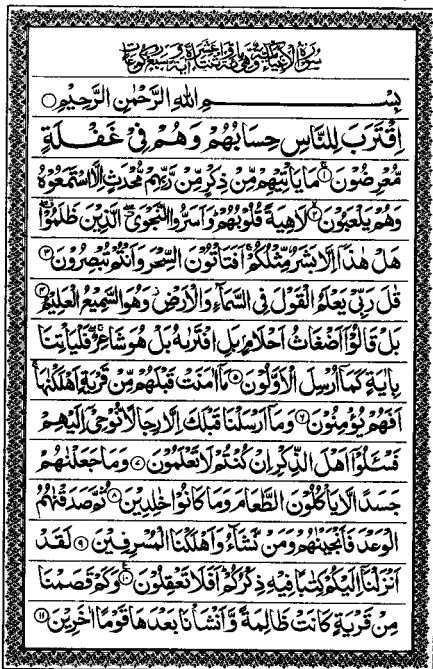 سورة الانبياء مكية وهي وسبع ركوعات
بِسْمِ اللهِ الرَّحْمٰنِ الرَّحِيْمِ
اِقْتَرَبَ لِلنَّاسِ حِسَابُهُمْ وَهُمْ فِيْ غَفْلَةٍ
مُّعْرِضُوْنَ ۱ مَا يَأْتِيْهِمْ مِّنْ ذِكْرٍ مِّنْ رَّبِّهِمْ مُّحْدَثٍ اِلَّا اسْتَمَعُوْهُ
وَهُمْ يَلْعَبُوْنَ ۲ لَاهِيَةً قُلُوْبُهُمْ وَاَسَرُّوا النَّجْوَى الَّذِيْنَ ظَلَمُوْا
هَلْ هٰذَآ اِلَّا بَشَرٌ مِّثْلُكُمْ اَفَتَأْتُوْنَ السِّحْرَ وَاَنْتُمْ تُبْصِرُوْنَ ۳
قٰلَ رَبِّيْ يَعْلَمُ الْقَوْلَ فِي السَّمَآءِ وَالْاَرْضِ وَهُوَ السَّمِيْعُ الْعَلِيْمُ ۴
بَلْ قَالُوْٓا اَضْغَاثُ اَحْلَامٍ بَلِ افْتَرٰىهُ بَلْ هُوَ شَاعِرٌ فَلْيَأْتِنَا
بِاٰيَةٍ كَمَآ اُرْسِلَ الْاَوَّلُوْنَ ۵ مَآ اٰمَنَتْ قَبْلَهُمْ مِّنْ قَرْيَةٍ اَهْلَكْنٰهَا
اَفَهُمْ يُؤْمِنُوْنَ ۶ وَمَآ اَرْسَلْنَا قَبْلَكَ اِلَّا رِجَالًا نُّوْحِيْٓ اِلَيْهِمْ
فَسْـَٔلُوْٓا اَهْلَ الذِّكْرِ اِنْ كُنْتُمْ لَا تَعْلَمُوْنَ ۷ وَمَا جَعَلْنٰهُمْ
جَسَدًا لَّا يَأْكُلُوْنَ الطَّعَامَ وَمَا كَانُوْا خٰلِدِيْنَ ۸ ثُمَّ صَدَقْنٰهُمُ
الْوَعْدَ فَاَنْجَيْنٰهُمْ وَمَنْ نَّشَآءُ وَاَهْلَكْنَا الْمُسْرِفِيْنَ ۹ لَقَدْ
اَنْزَلْنَآ اِلَيْكُمْ كِتٰبًا فِيْهِ ذِكْرُكُمْ اَفَلَا تَعْقِلُوْنَ ۱۰ وَكَمْ قَصَمْنَا
مِنْ قَرْيَةٍ كَانَتْ ظَالِمَةً وَّاَنْشَأْنَا بَعْدَهَا قَوْمًا اٰخَرِيْنَ ۱۱